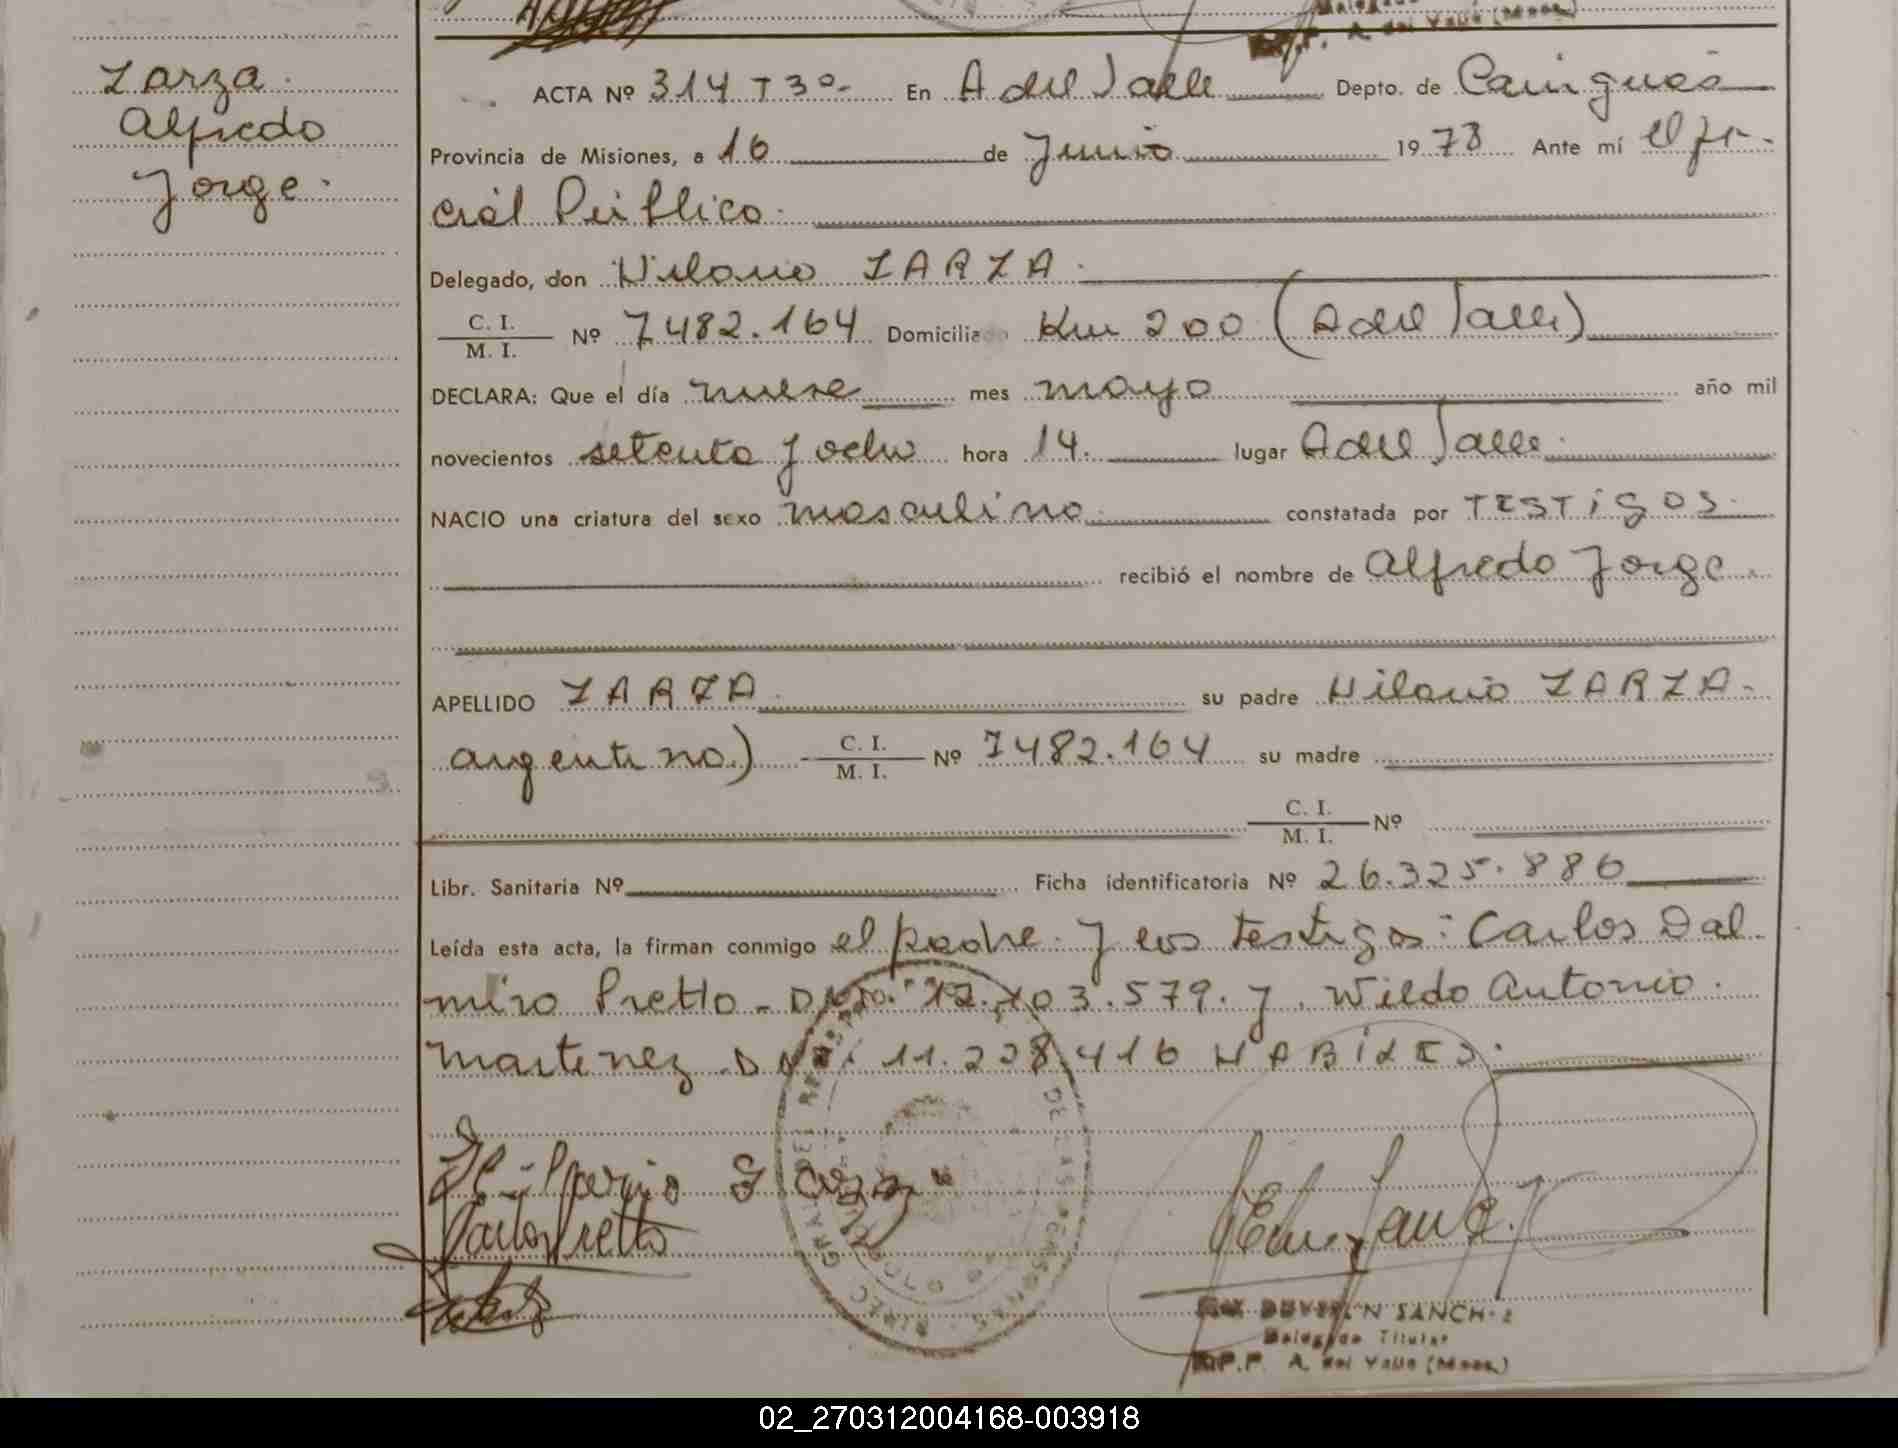 A. del Valle (Mnes.)
Zarza
Alfredo
Jorge.
ACTA Nº 314 T 3º- En A del Valle Depto. de Cainguás
Provincia de Misiones, a 16 de Junio 1978 Ante mí el
Público.
Delegado, don Hilario ZARZA.
C. I.
M. I. Nº 7482.164 Domicilia Km 200 (A del Valle)
DECLARA: Que el día nueve mes mayo año mil
novecientos setenta y ocho hora 14. lugar A del Valle.
NACIO una criatura del sexo masculino constatada por TESTIGOS.
recibió el nombre de Alfredo Jorge.
APELLIDO ZARZA. su padre Hilario ZARZA-
argentino.) C. I.
M. I. Nº 7482.164 su madre
C. I.
M. I. Nº
Libr. Sanitaria Nº Ficha identificatoria Nº 26.325.886
Leída esta acta, la firman conmigo el padre y los testigos: Carlos Dal
miro Pretto - 12.103.579. y Wildo Antonio
Martinez 11.228.416 HABILES.
Carlos Pretto
SANCHEZ
Delegado Titular
R.P.P. A. del Valle (Mnes.)
02_270312004168-003918